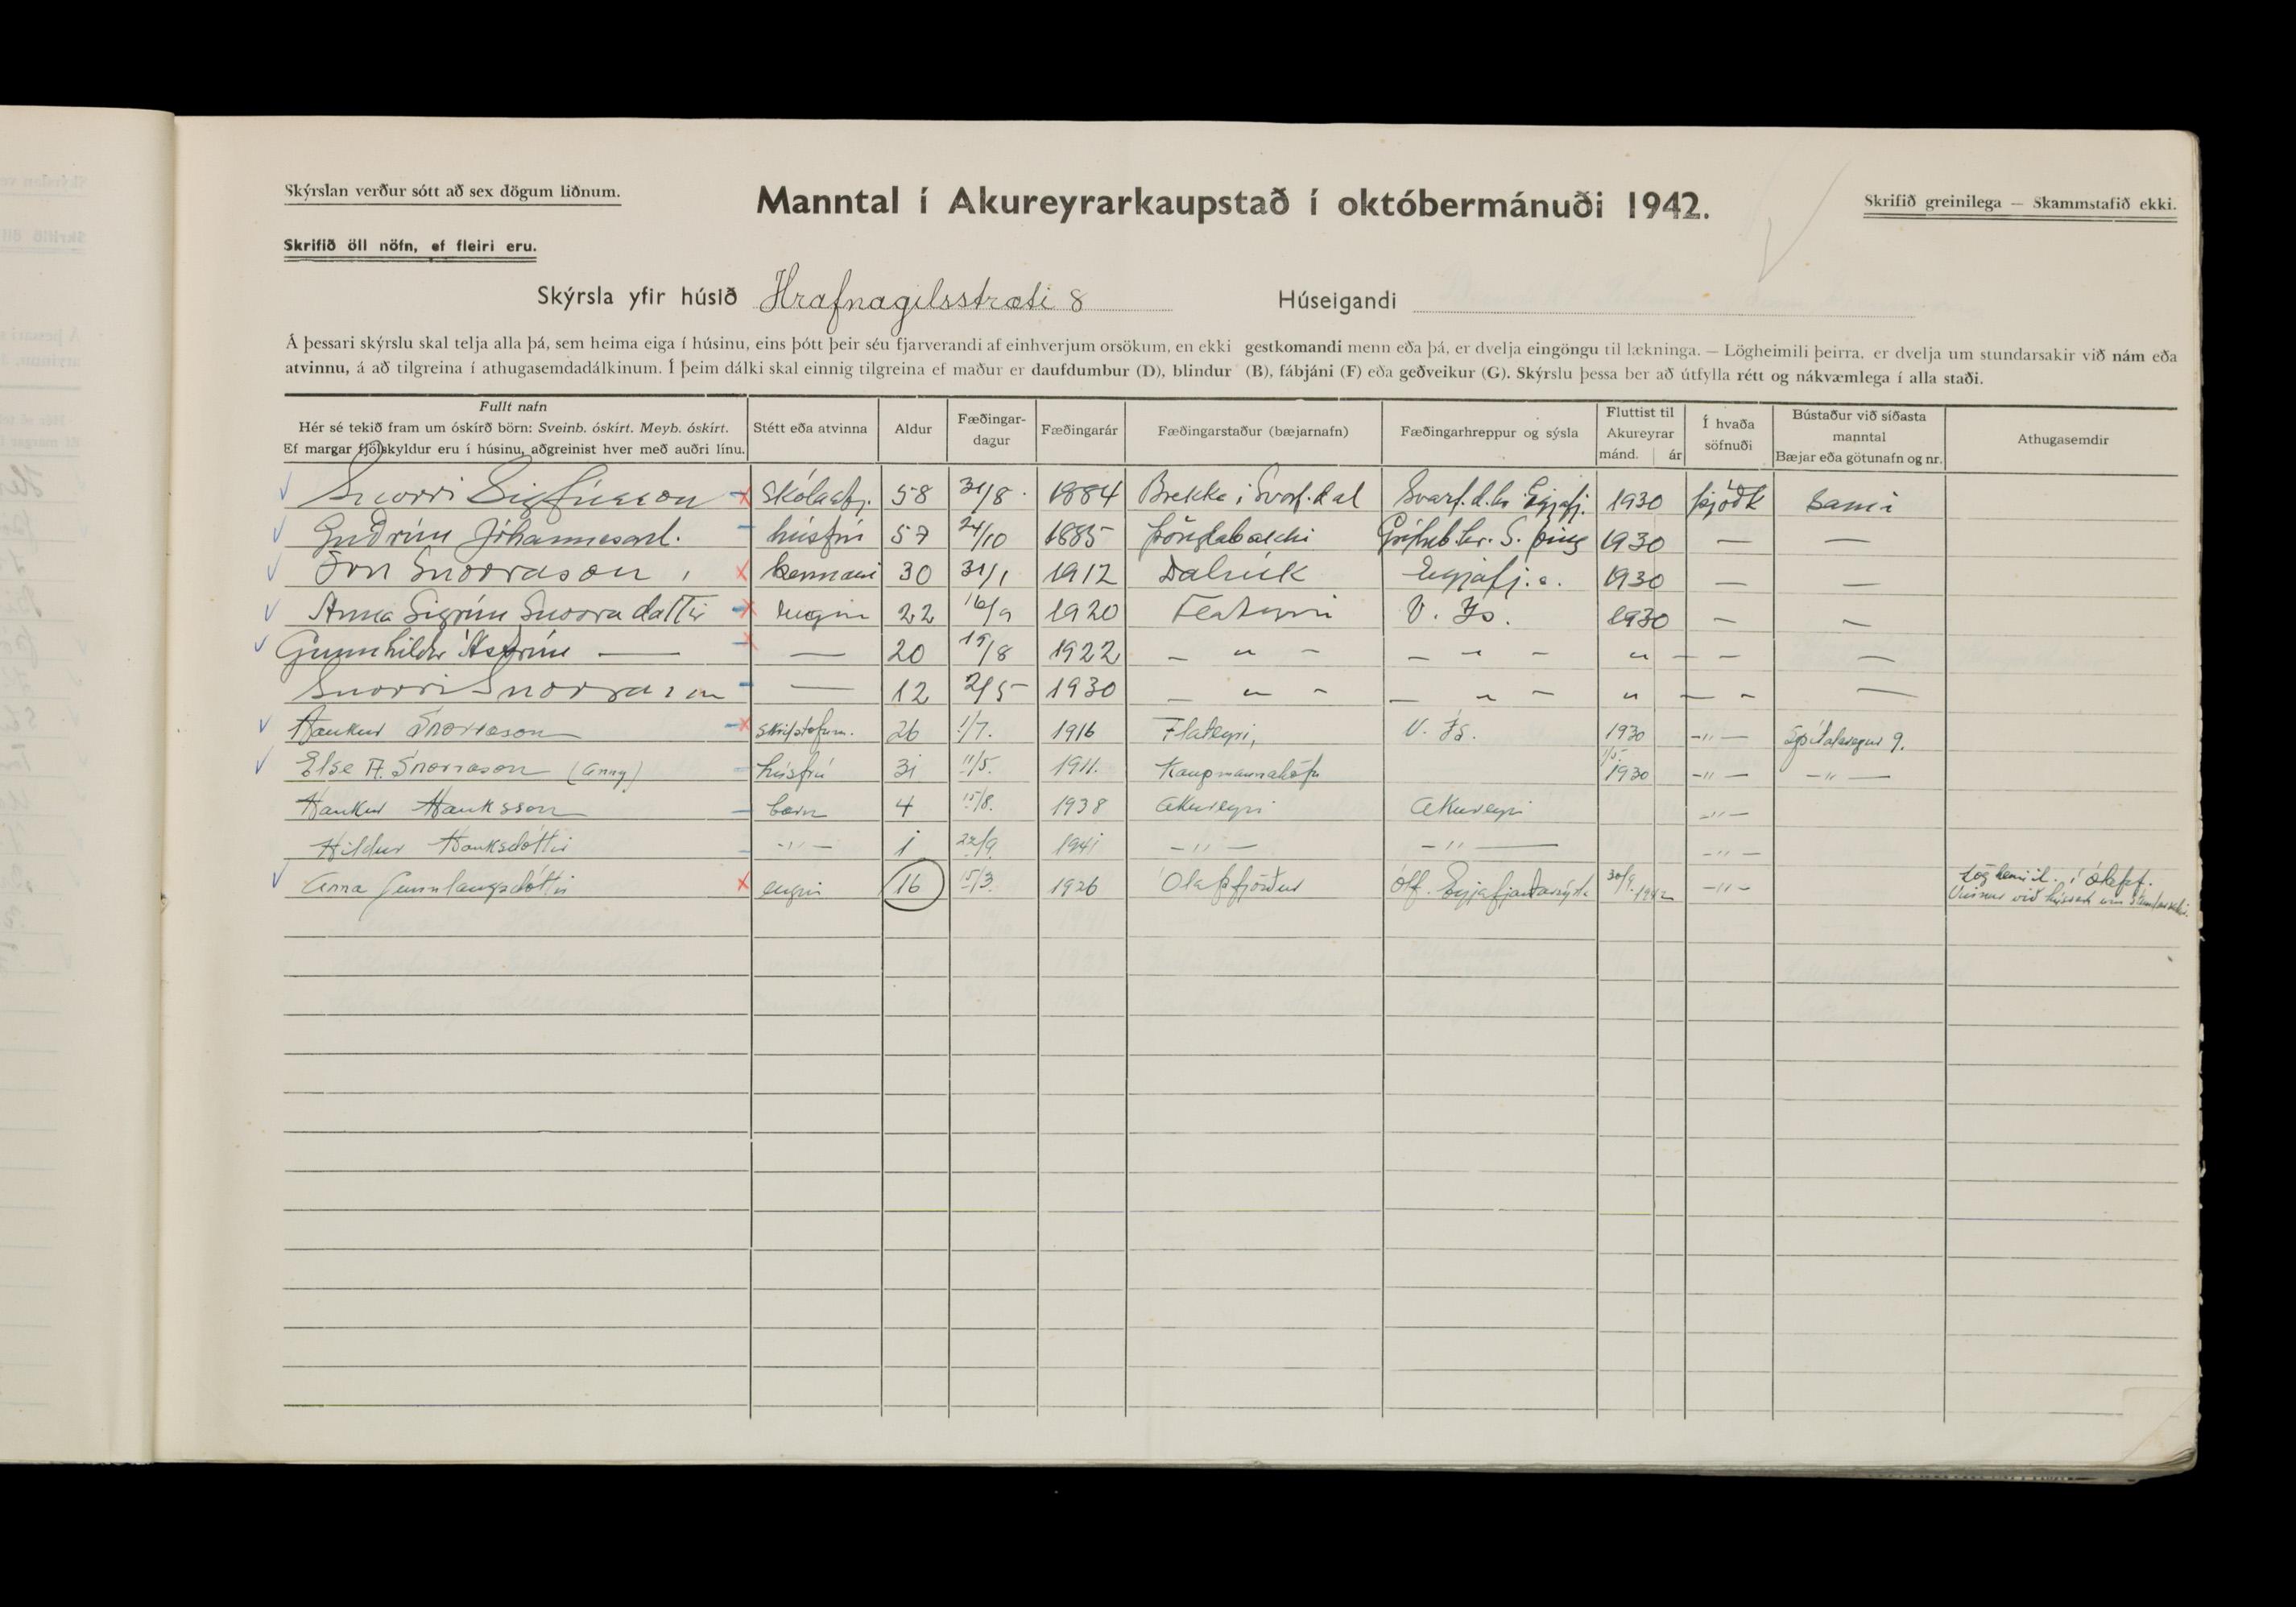 Skýrslan verður sótt að sex dögum liðnum.
Manntal í Akureyrarkaupstað í októbermánuði 1942.
Skrifið greinilega — Skammstafið ekki.
Skrifið öll nöfn, ef fleiri eru.
Skýrsla yfir húsið Hrafnagilsstræti 8 Húseigandi
Á þessari skýrslu skal telja alla þá, sem heima eiga í húsinu, eins þótt þeir séu fjarverandi af einhverjum orsökum, en ekki gestkomandi menn eða þá, er dvelja eingöngu til lækninga. — Lögheimili þeirra, er dvelja um stundarsakir við nám eða
atvinnu, á að tilgreina í athugasemdadálkinum. Í þeim dálki skal einnig tilgreina ef maður er daufdumbur (D), blindur (B), fábjáni (F) eða geðveikur (G). Skýrslu þessa ber að útfylla rétt og nákvæmlega í alla staði.
Fullt nafn
Hér sé tekið fram um óskírð börn: Sveinb. óskírt. Meyb. óskírt.
Ef margar fjölskyldur eru í húsinu, aðgreinist hver með auðri línu.
Stétt eða atvinna
Aldur
Fæðingar-
dagur
Fæðingarár
Fæðingarstaður (bæjarnafn)
Fæðingarhreppur og sýsla
Fluttist til
Akureyrar
mánd. ár
Í hvaða
söfnuði
Bústaður við síðasta
manntal
Bæjar eða götunafn og nr.
Athugasemdir
Snorri Sigfússon skólastj. 58 31/8 1884 Brekka í Svarf.dal Svarf.d.hr. Eyjafj. 1930 þjóðk sami
Guðrún Jóhannesd. húsfrú 57 24/10 1885 Þönglabakki S. Þing 1930 — —
Örn Snorrason kennari 30 31/1 1912 Dalvík Eyjafj.s. 1930 — —
Anna Sigrún Snorradóttir engin 22 16/9 1920 Flateyri V. Ís. 1930 — —
Gunnhildur Ástrún — — 20 19/8 1922 — " — — " — " — — —
Snorri Snorrason — 12 2/5 1930 — " — — " — " — — —
Haukur Snorrason skrifstofum. 26 1/7. 1916 Flateyri, V. Ís. 1930 —"— Spítalavegur 9.
Else A. Snorrason (Anny) húsfrú 31 11/5. 1911. Kaupmannahöfn 1/5. 1930 —"— —"—
Haukur Hauksson barn 4 15/8. 1938 Akureyri Akureyri —"—
Hildur Hauksdóttir —"— 1 22/9 1941 —"— —"— —"—
Anna Gunnlaugsdóttir engin 16 15/3. 1926 Ólafsfjörður Ólf. Eyjafjarðarsýsla 30/9. 1942 —"— Lögheimil. í Ólafsf.
Vinnur við húsverk um stundarsakir.